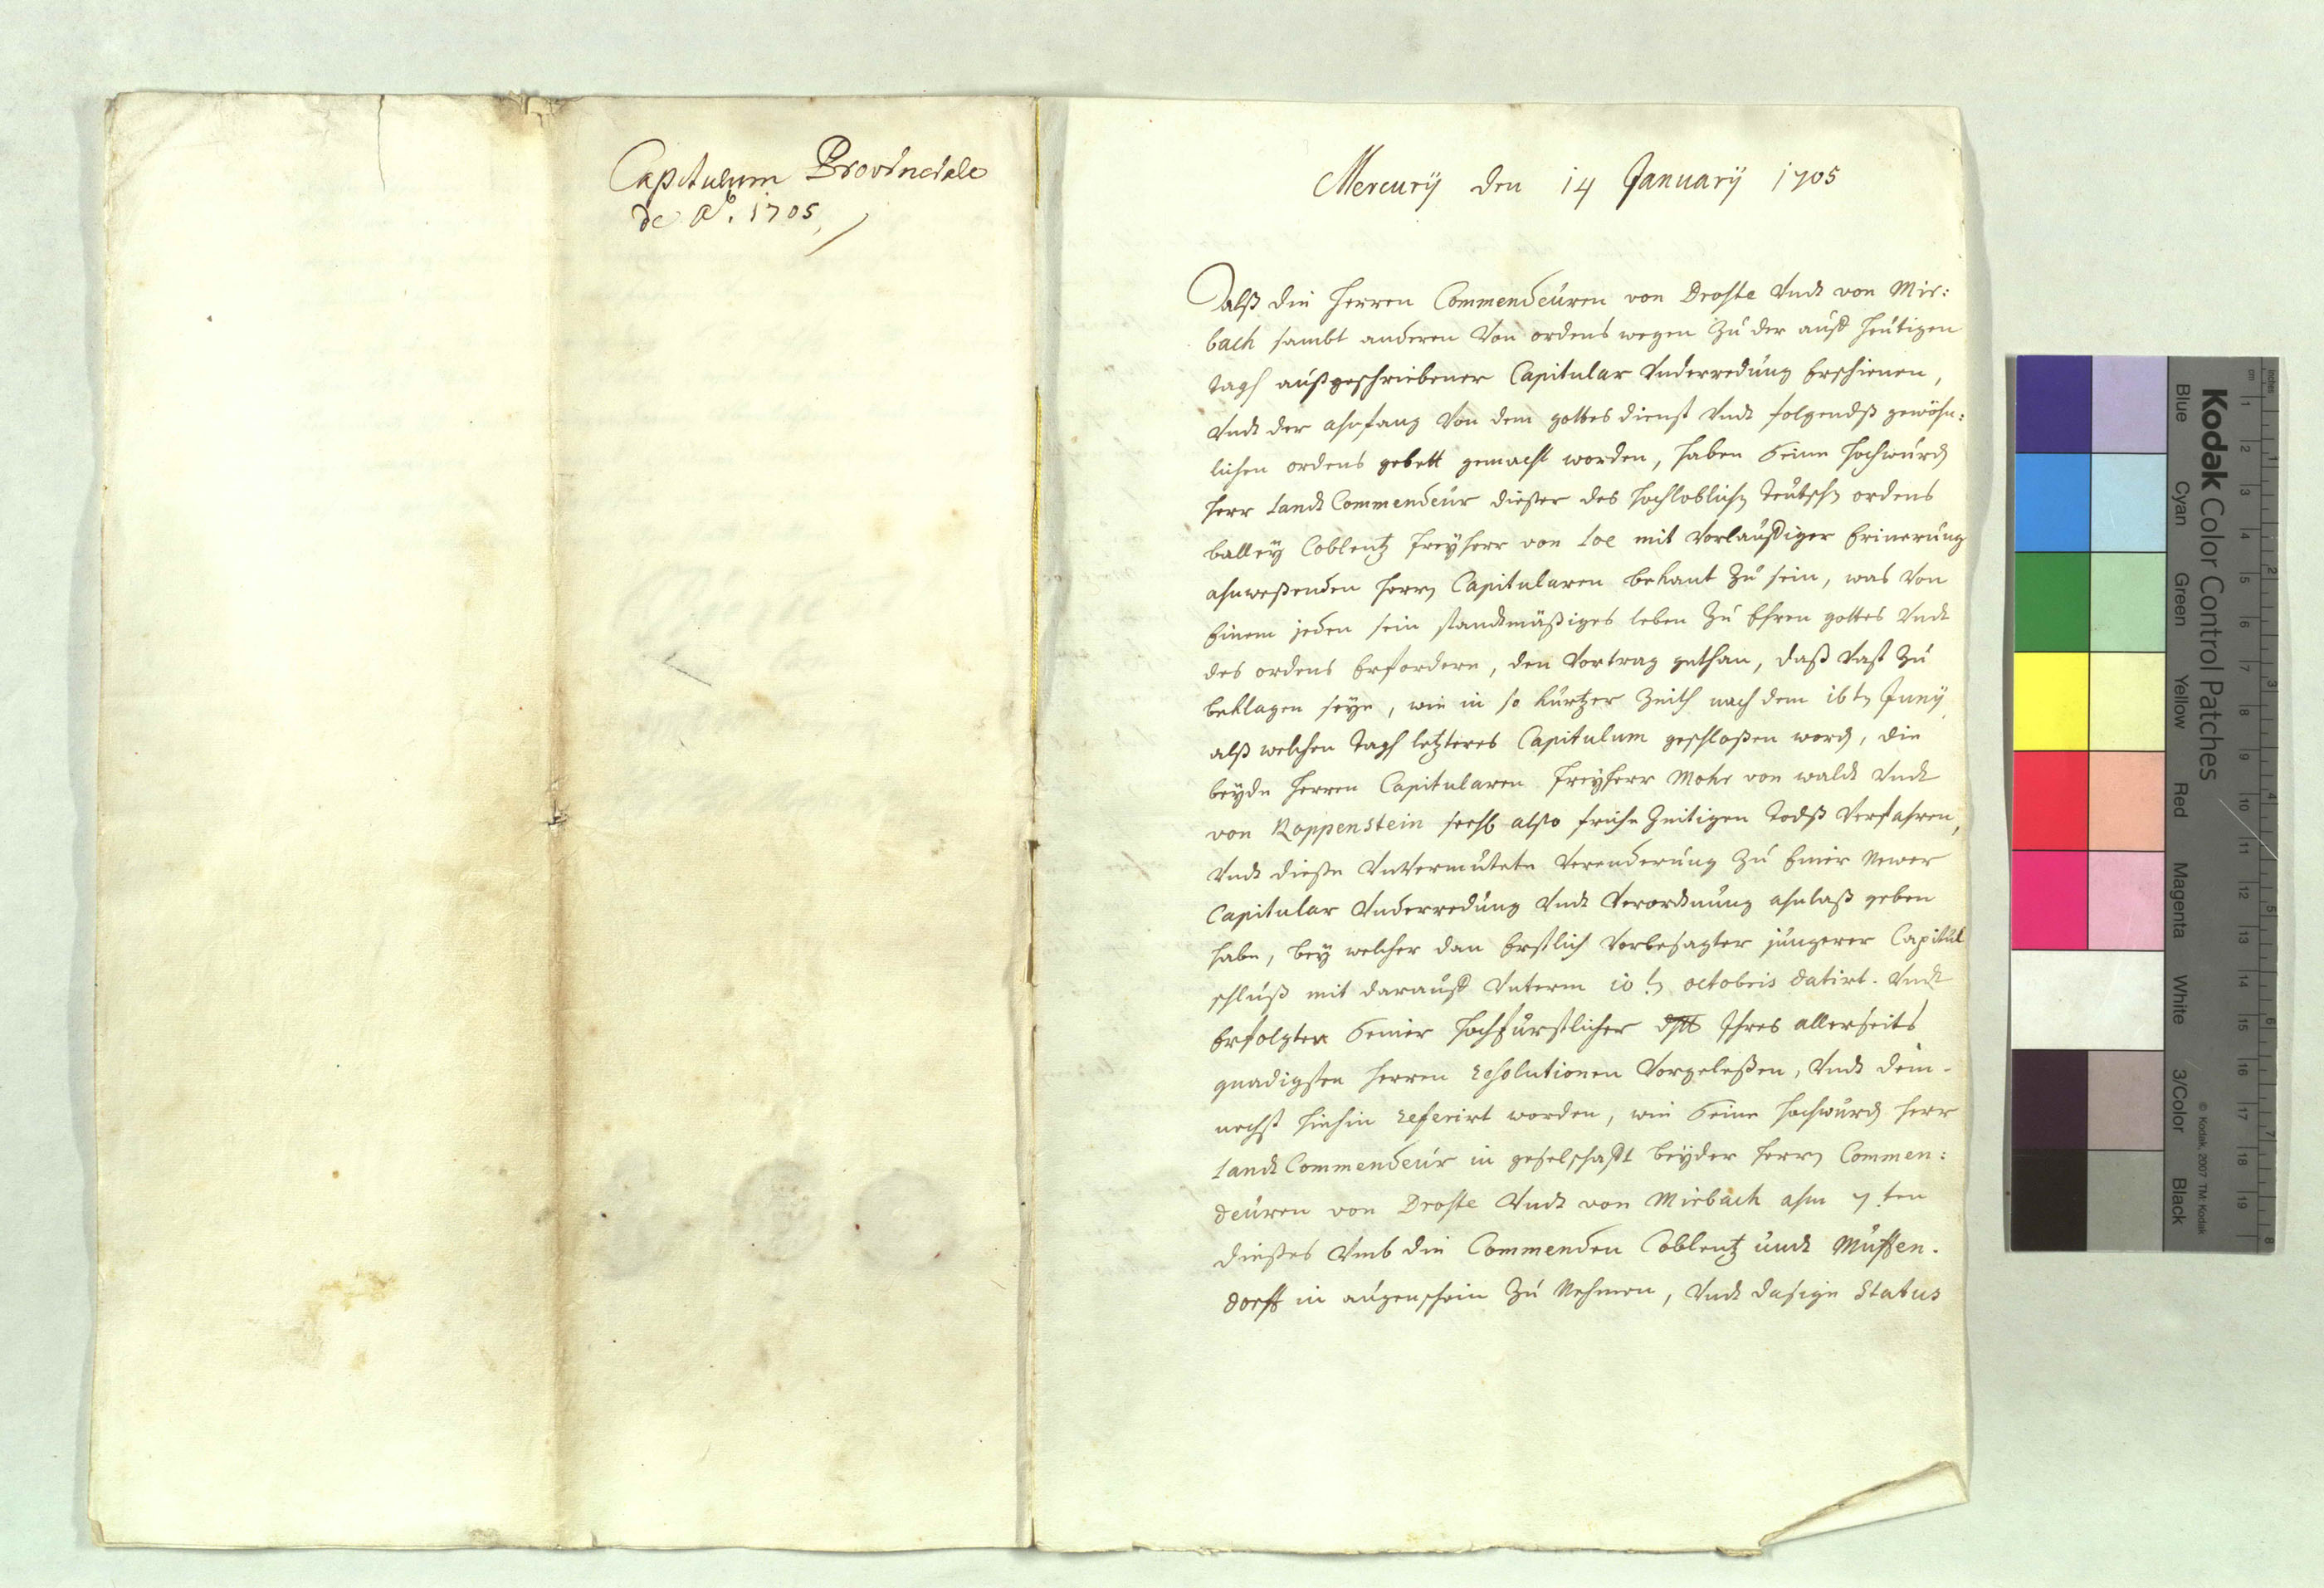 Capitulum Provinciale
de Ao. 1705,
Mercurÿ den 14 Januarÿ 1705
Alß die Herren Commendeuren von Droste Undt von Mir:
bach sambt anderen Von ordens wegen Zu der auff heutigen
tagh außgeschriebener Capitular Underredung Erschienen,
Undt der ahnfang Von dem gottes dienst Undt folgendß gewöhn:
lichen ordens gebett gemacht worden, haben Seine Hochwürd
Herr Landt Commendeur dießer des Hochloblichen Teutschen ordens
balleÿ Coblentz Freÿherr von Loe mit Vorlauffiger Erinerung
ahnweßenden Herren Capitularen bekant Zu sein, was Von
Einem jeden sein standtmäßiges leben Zu Ehren gottes Undt
des ordens Erfordere, den Vortrag gethan, daß Vast Zu
beklagen seÿe, wie in so kurtzer Zeith nach dem 16ten Junÿ
alß welchen tagh letzteres Capitulum geschloßen word, die
beÿde Herren Capitularen Freÿherr Mohr von waldt Undt
von Koppenstein seel also frühe Zeitigen Todß Verfahren,
Undt dieße UnVermutete Verenderung Zu Einer Newer
Capitular Underredung Undt Verordnung ahnlaß geben
habe, beÿ welcher dan Erstlich Vorbesagter jüngerer Capitul
schluß mit darauff Unterm 10ten octobris datirt. Undt
Erfolgten Seiner Hochfürstlicher Ihres allerseits
gnadigsten Herren resolutionen Vorgeleßen, Undt dem-
nechst hiehin referirt worden, wie Seine Hochwürd Herr
Landt Commendeur in geselschafft beÿder Herren Commen:
deuren von Droste Undt von Mirbach ahm 7ten
dießes Umb die Commenden Coblentz undt Muffen-
dorff in augenschein Zu Nehmen, Undt dasige Status
Kodak Color Control Patches
Blue Cyan Green Yellow Red Magenta White 3/Color Black
© Kodak, 2007 TM: Kodak
inches 1 2 3 4 5 6 7 8
cm 1 2 3 4 5 6 7 8 9 10 11 12 13 14 15 16 17 18 19